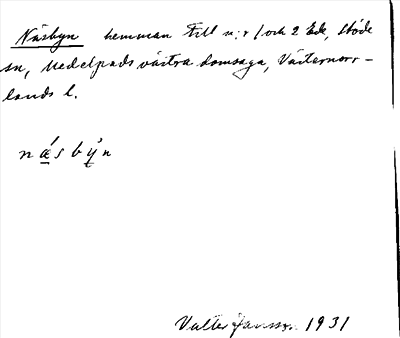 Näsbyn hemman Till n:r 1 och 2 Ede, Stöde
sn, Medelpads västra domsaga, Västernorr-
lands l.
næ´sby`n
Valter Jansson. 1931